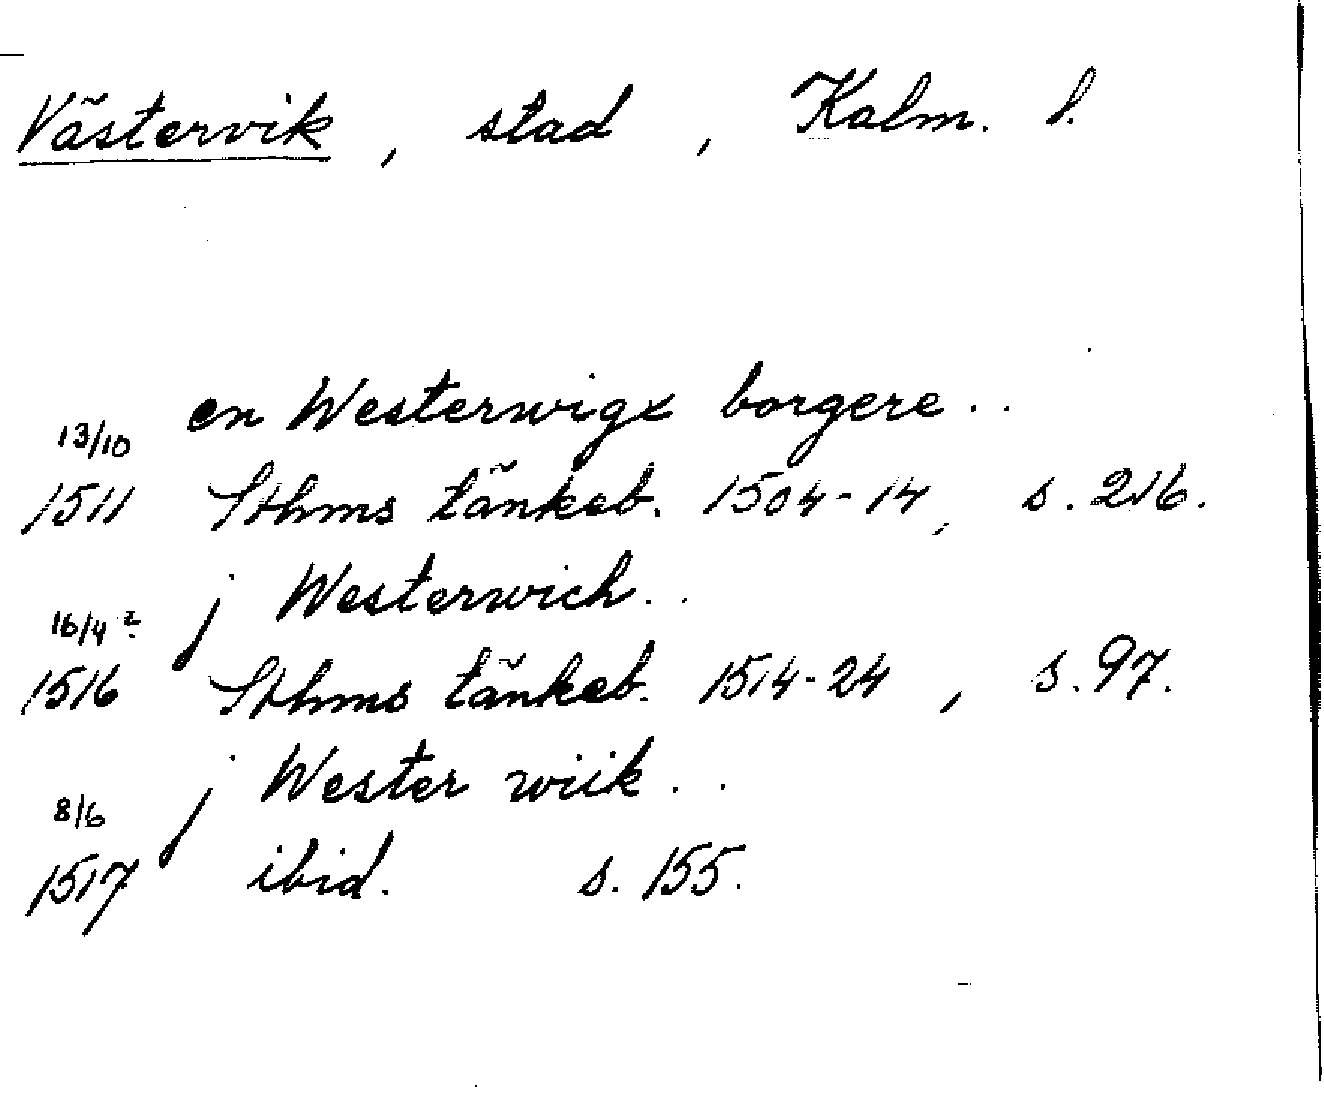 Västervik, stad, Kalm. l.
en Westerwigx borgere..
13/10
1511 Sthms tänkeb. 1504-14, s. 216.
j Westerwich..
16/4 ?
1516 Sthms tänkeb. 1514-24, s. 97.
j Wester wiik..
8/6
1517 ibid. s. 155.